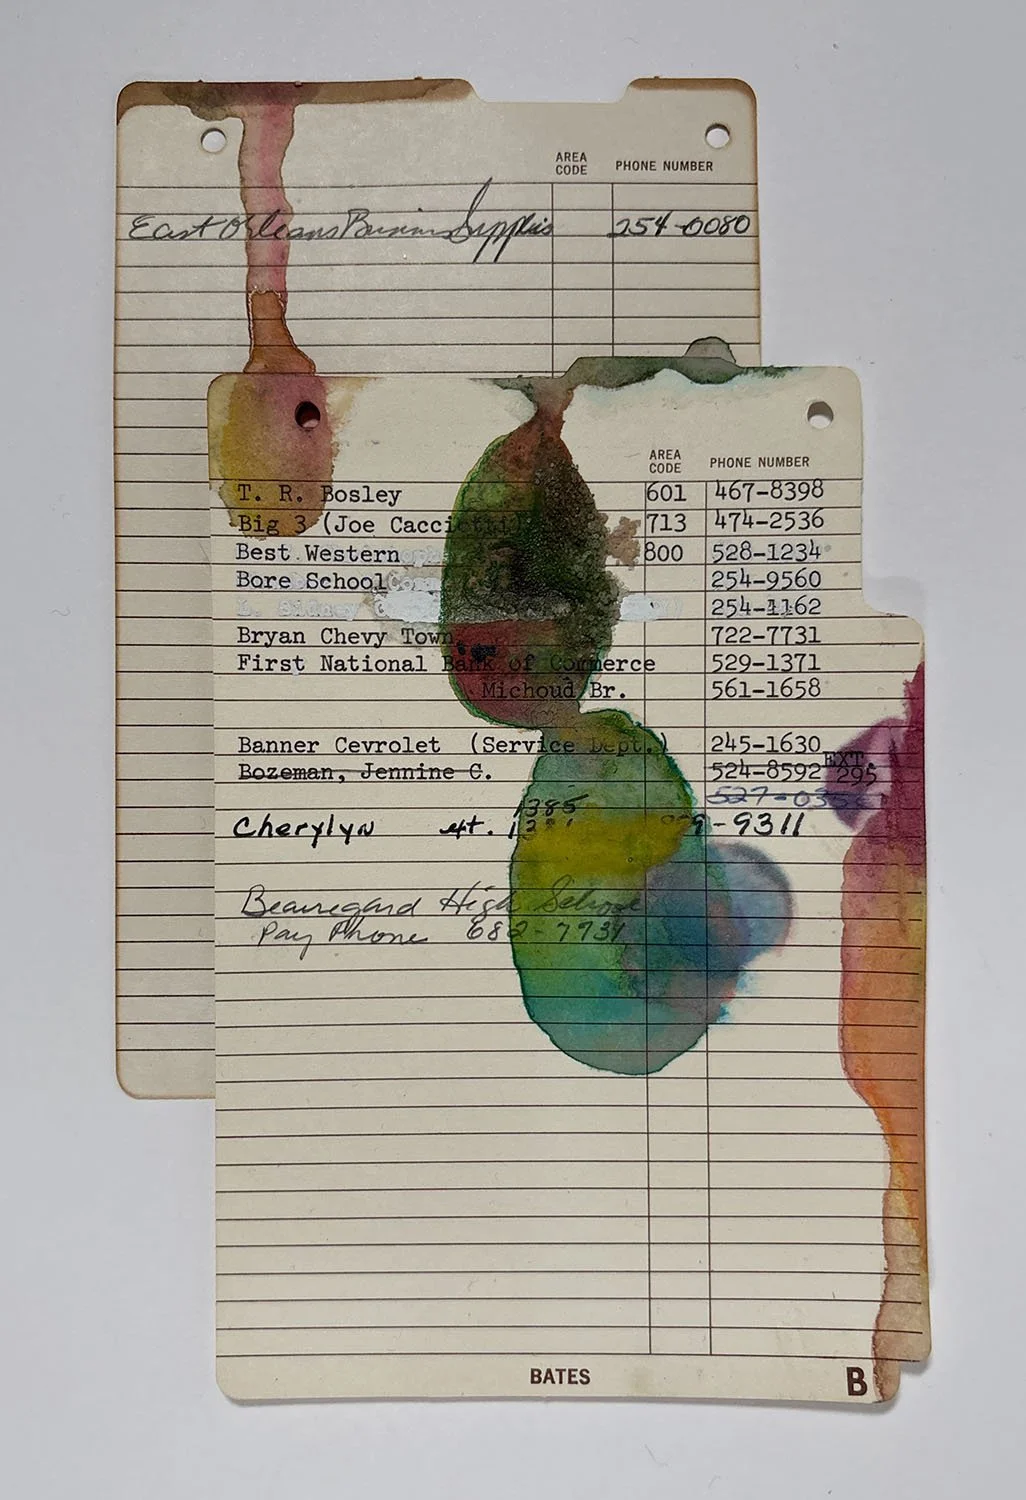 AREA CODE PHONE NUMBER
East Orleans Business Supplies 254-0080
AREA CODE PHONE NUMBER
T. R. Bosley 601 467-8398
Big 3 (Joe Cacciotti) 713 474-2536
Best Western 800 528-1234
Bore School 254-9560
L. Sidney 254-1162
Bryan Chevy Town 722-7731
First National Bank of Commerce 529-1371
Michoud Br. 561-1658
Banner Cevrolet (Service Dept.) 245-1630
Bozeman, Jennine C. 524-8592 EXT. 295
1385
Cherylyn -9311
Beauregard High School
Pay Phone 682-7731
BATES B